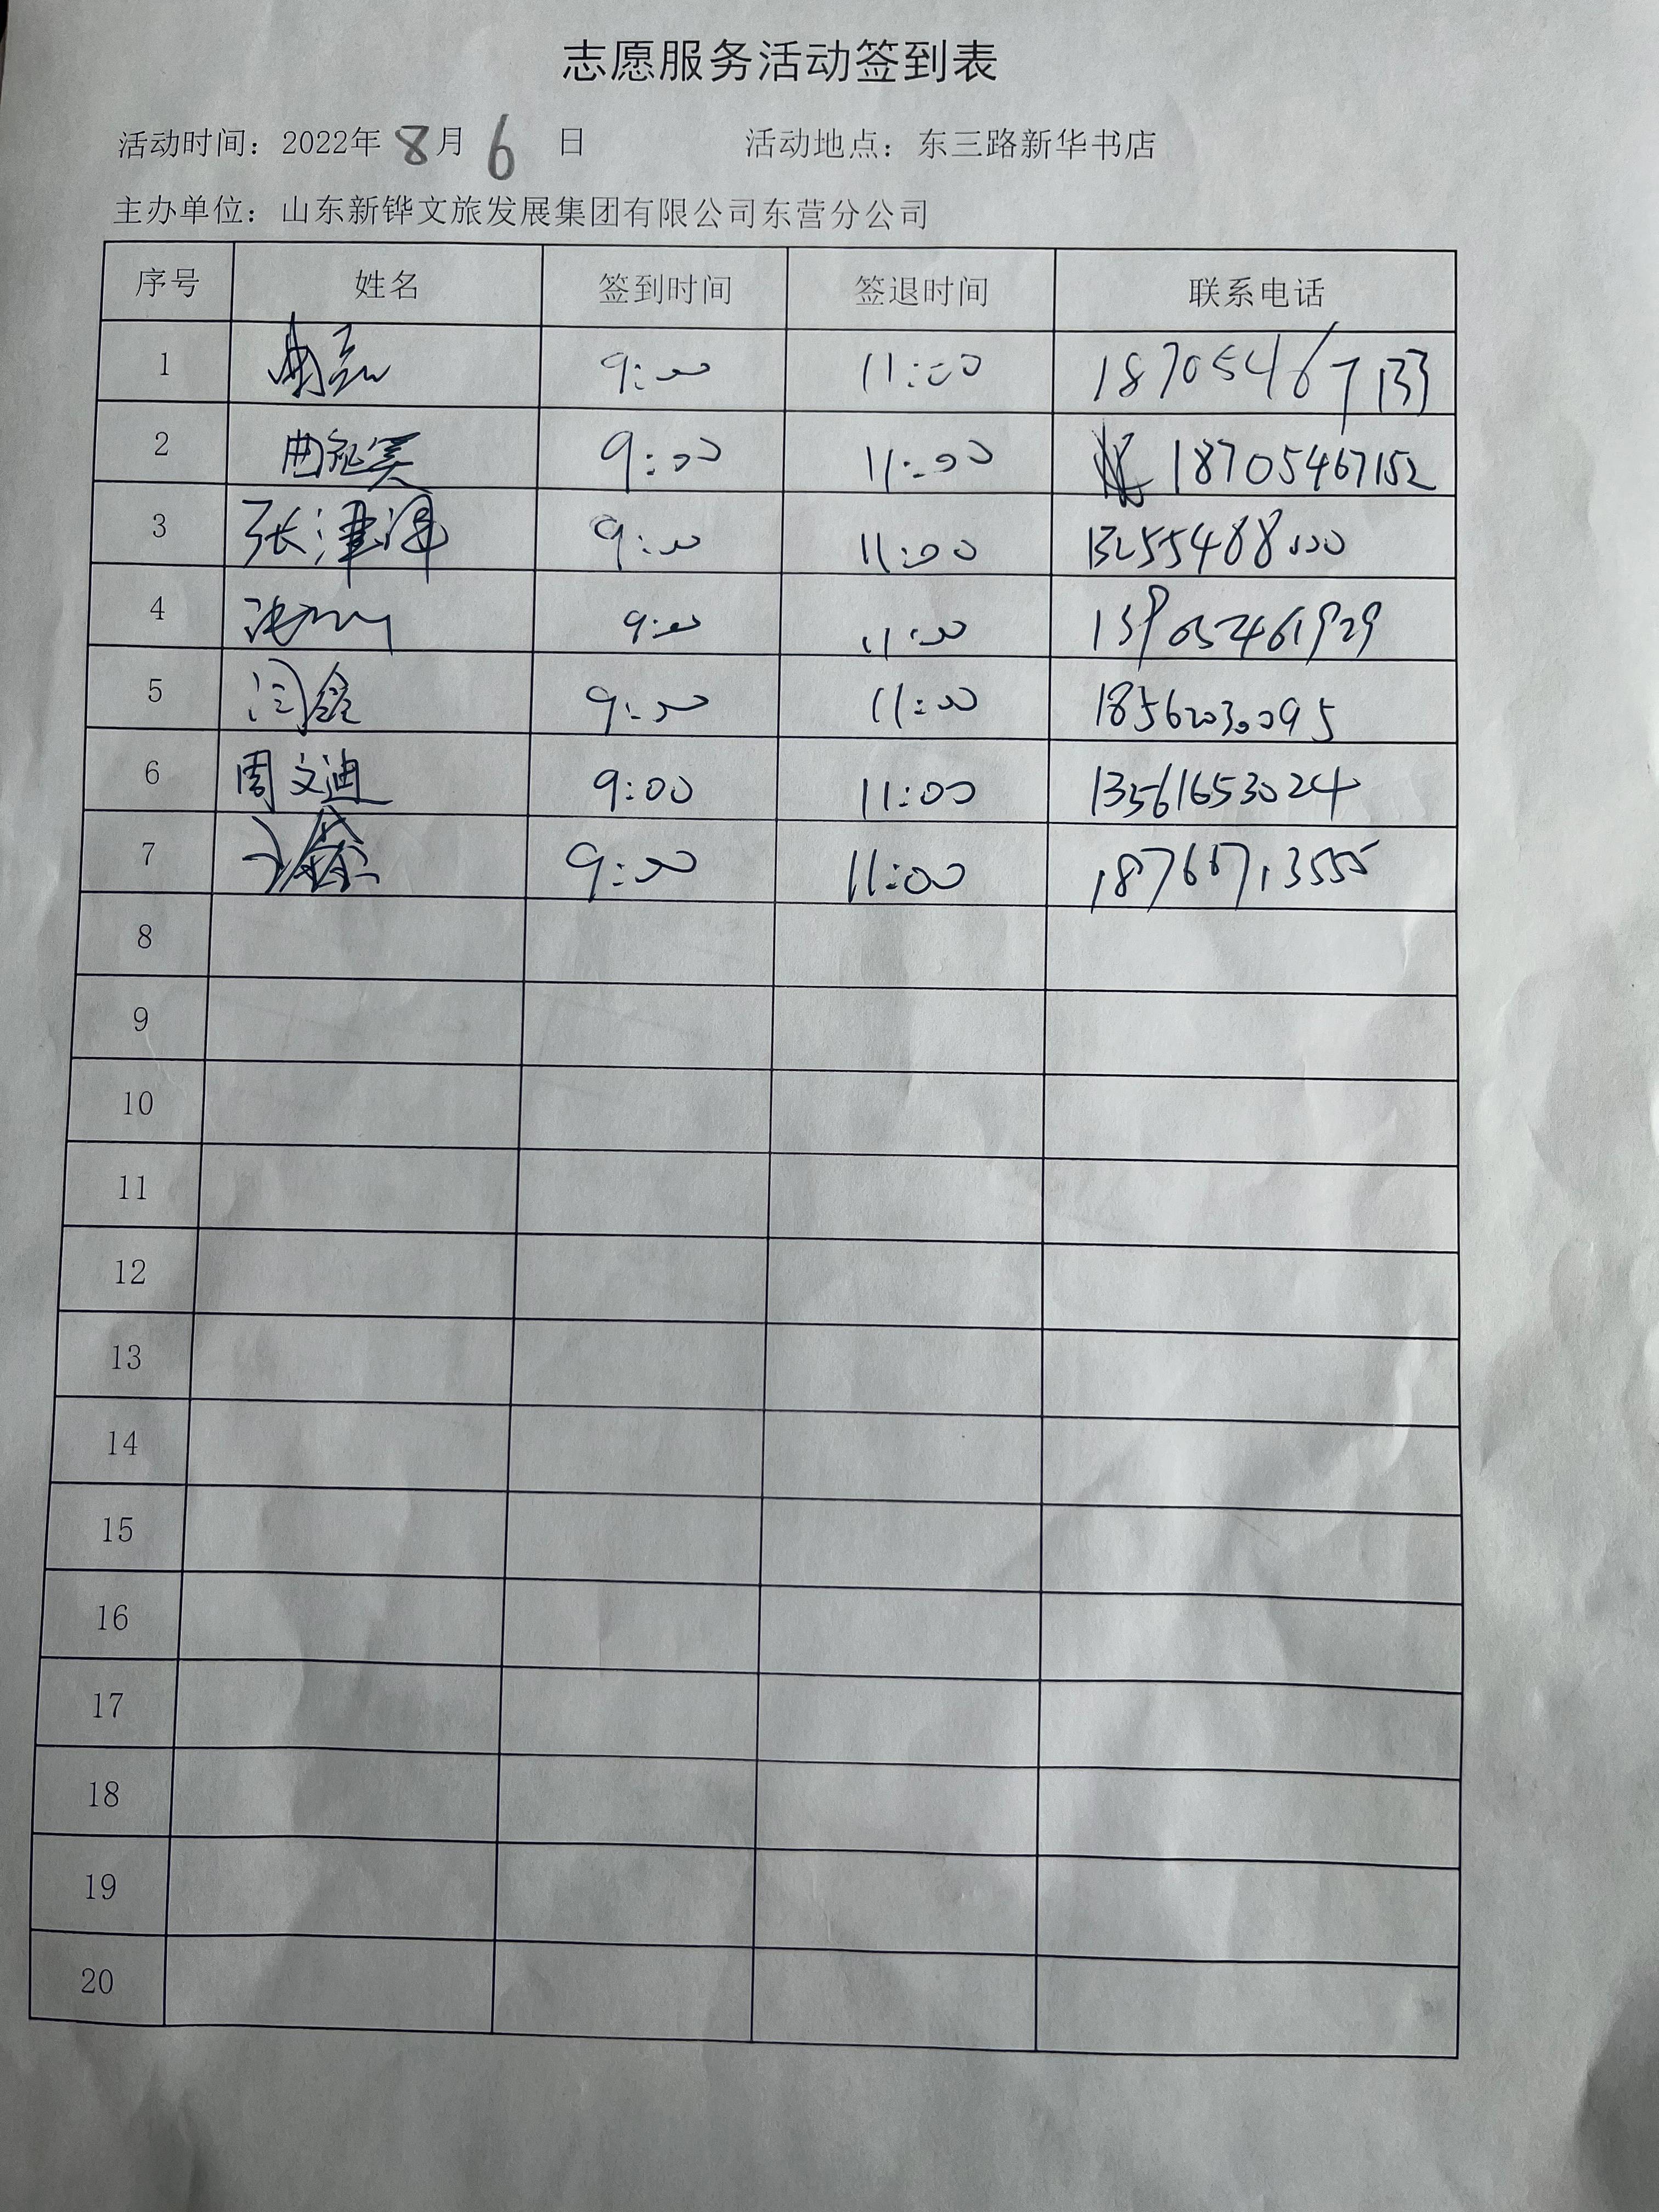 志愿服务活动签到表
活动时间：2022年 8月 6 日 活动地点：东三路新华书店
主办单位：山东新铧文旅发展集团有限公司东营分公司
序号 姓名 签到时间 签退时间 联系电话
1 9:00 11:00 18705467133
2 曲 9:00 11:00 18705467152
3 张津 9:00 11:00 13255488000
4 9:00 11:00 13905461929
5 闫鑫 9:00 11:00 18562030095
6 周文迪 9:00 11:00 13561653024
7 9:00 11:00 18766713555
8
9
10
11
12
13
14
15
16
17
18
19
20